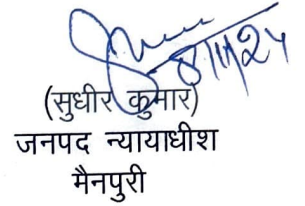 8/11/24
(सुधीर कुमार)
जनपद न्यायाधीश
मैनपुरी